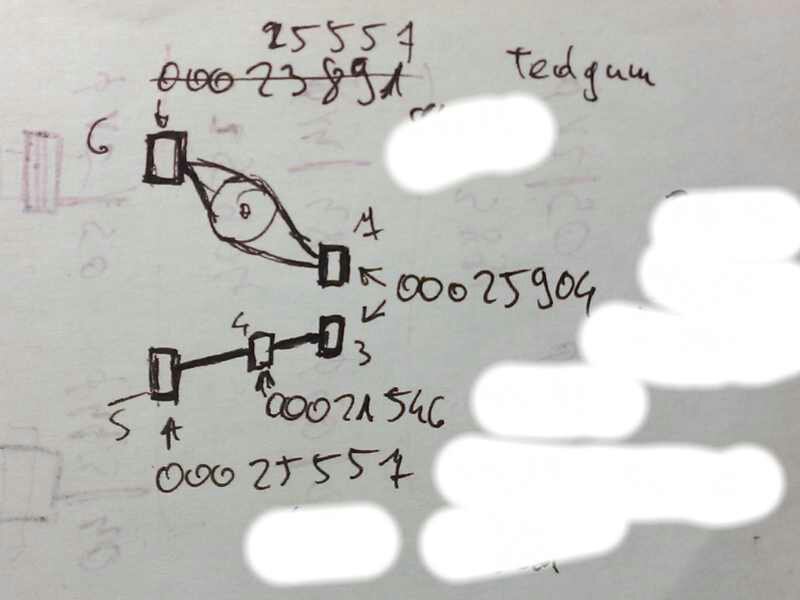 25557
00023891
Tedgum
6
7
00025904
4
3
5
00021546
00025557